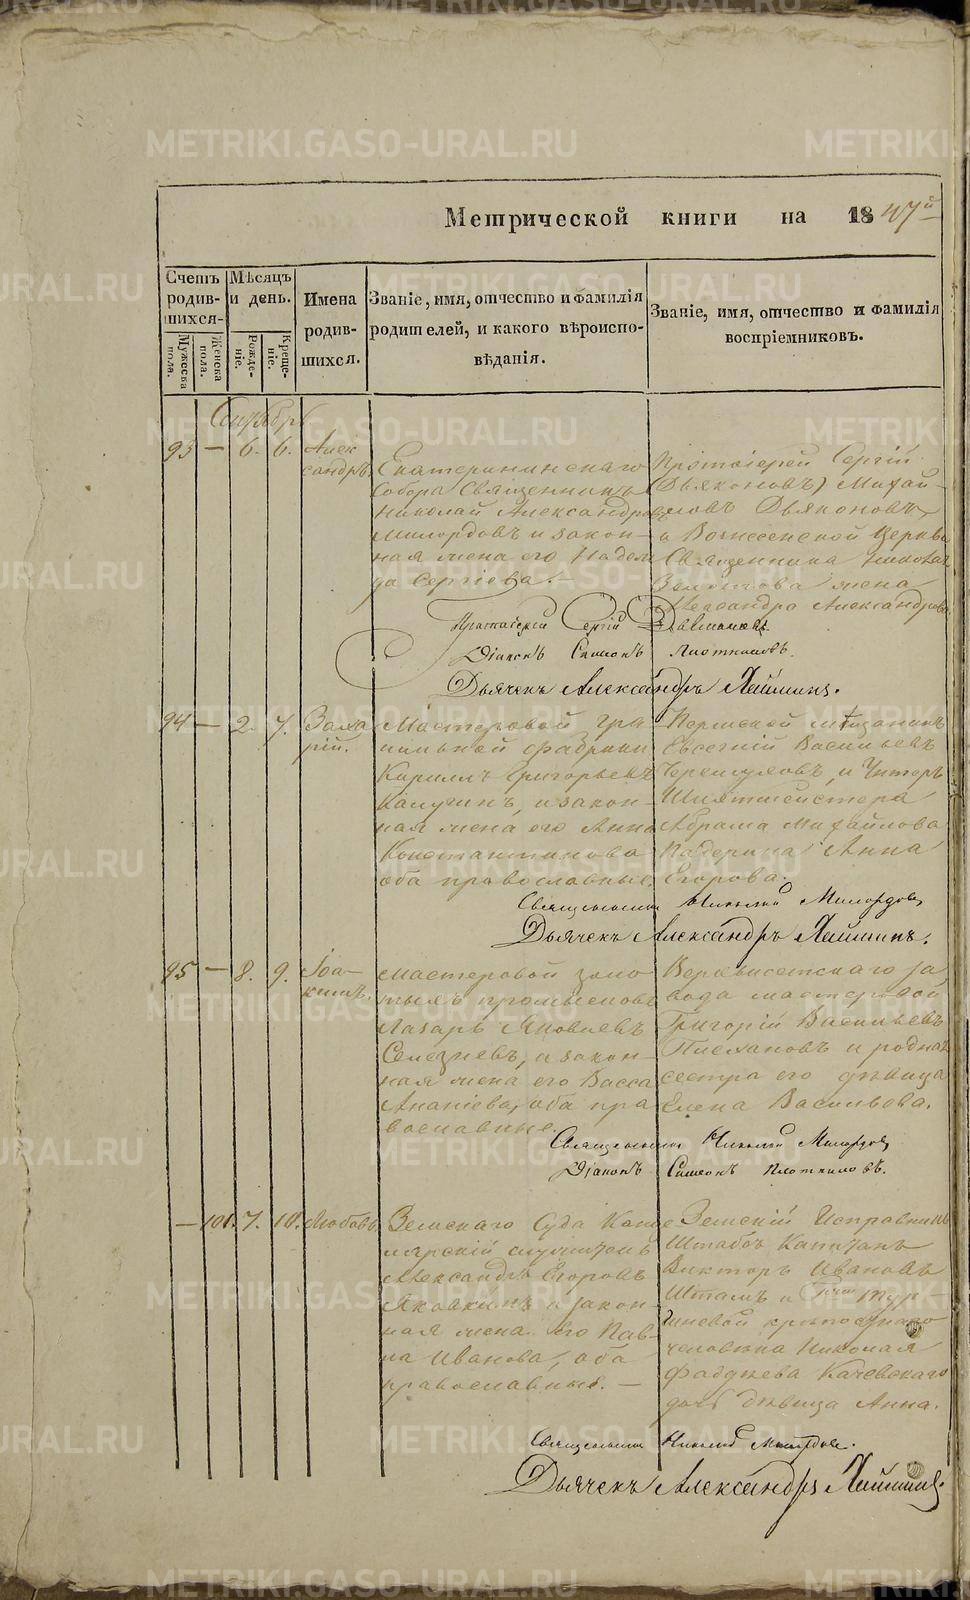 METRIKI.GASO-URAL.RU
Метрической книги на 1847й
Счетъ родив-шихся.
Мужеска пола.
Женска пола.
Мѣсяцъ и день.
Рожде-ніе.
Креще-ніе.
Имена родив-шихся.
Званіе, имя, отчество и фамилія
родителей, и какого вѣроиспо-
вѣданія.
Званіе, имя, отчество и фамилія
воспріемниковъ.
Сентябрь
93 — 6. 6. Алек
сандръ.
Екатерининскаго
Собора Священникъ
Николай Александровъ
Милордовъ и закон-
ная жена его Надеж
да Сергіева. —
Протоіерей Сергій
(Дьяконовъ) Михай-
ловъ Дьяконовъ,
и Вознесенской Церкви
Священника Николая
жена
Александра Александрова
Протоіерей Сергій Дьяконовъ.
Діаконъ Симеонъ Плотниковъ.
Дьячекъ Александръ
94 — 2. 7. Заха
рій.
Мастеровой гра
нильной фабрики
Кириллъ Григорьевъ
Калугинъ, и закон-
ная жена его Анна
Константинова
оба православные,
Пермской мѣщанинъ
Евгеній Васильевъ
и Унтеръ
Шихтмейстера
Абрама Михайлова
Падерина Анна
Егорова.
Священникъ Николай Милордовъ
Дьячекъ Александръ
95 — 8. 9. Іоа-
кимъ.
Мастеровой золо
тыхъ промысловъ
Лазарь Яковлевъ
Селезневъ, и закон-
ная жена его Васса
Ананіева, оба пра
вославные.
Верхисетскаго за
вода мастеровой
Григорій Васильевъ
Плехановъ и родная
сестра его дѣвица
Елена Васильева.
Священникъ Николай Милордовъ
Діаконъ Симеонъ Плотниковъ.
— 101. 7. 10. Любовь.
Земскаго Суда Канце
лярскій служитель
Александръ Егоровъ
Яковкинъ и закон-
ная жена его Пав-
ла Иванова, оба
православные. —
Земскій Исправникъ
Штабсъ Капитанъ
Викторъ Ивановъ
Штамъ и Гжи Тур-
крѣпостнаго
человѣка Николая
Фаддѣева Качевскаго
дочь дѣвица Анна.
Священникъ Николай Милордовъ.
Дьячекъ Александръ